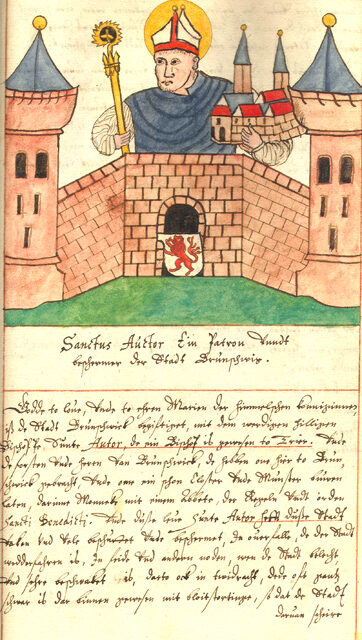 Sanctus Autor Ein Patron vnndt
beschermer der Stadt Brunschwix.
Godde to love, vnde to ehren Marien der himmelschen konniginnen,
is de Stadt Brunschwick begifftiget, mit dem werdigen hilligen
Bischoppe Sunte Autor, de ein Bischof is gewesen to Trere. Vnde
de forsten vnde heren van Brunschwick, de hebben one hier to Brun-
schwick gebracht, vnde one ein schon Closter vnde Münster buwen
laten, darinne Monneke mit einem Abbete, der Regeln vndt orden
Sancti Benedicti. Vnde düsse leve Sunte Autor hefft düsse Stadt
vaken vnd vele beschüttet vnde beschermet, in overfalle, de der Stadt
wedderfahren is, in feide vnd andern noden, wen de Stadt
vnd sehre beschwaket is, darto ock in twidracht, dede oft gantz
schwar is dar binnen gewesen mit bloitstortinge, so dat de Stadt
darvan schire